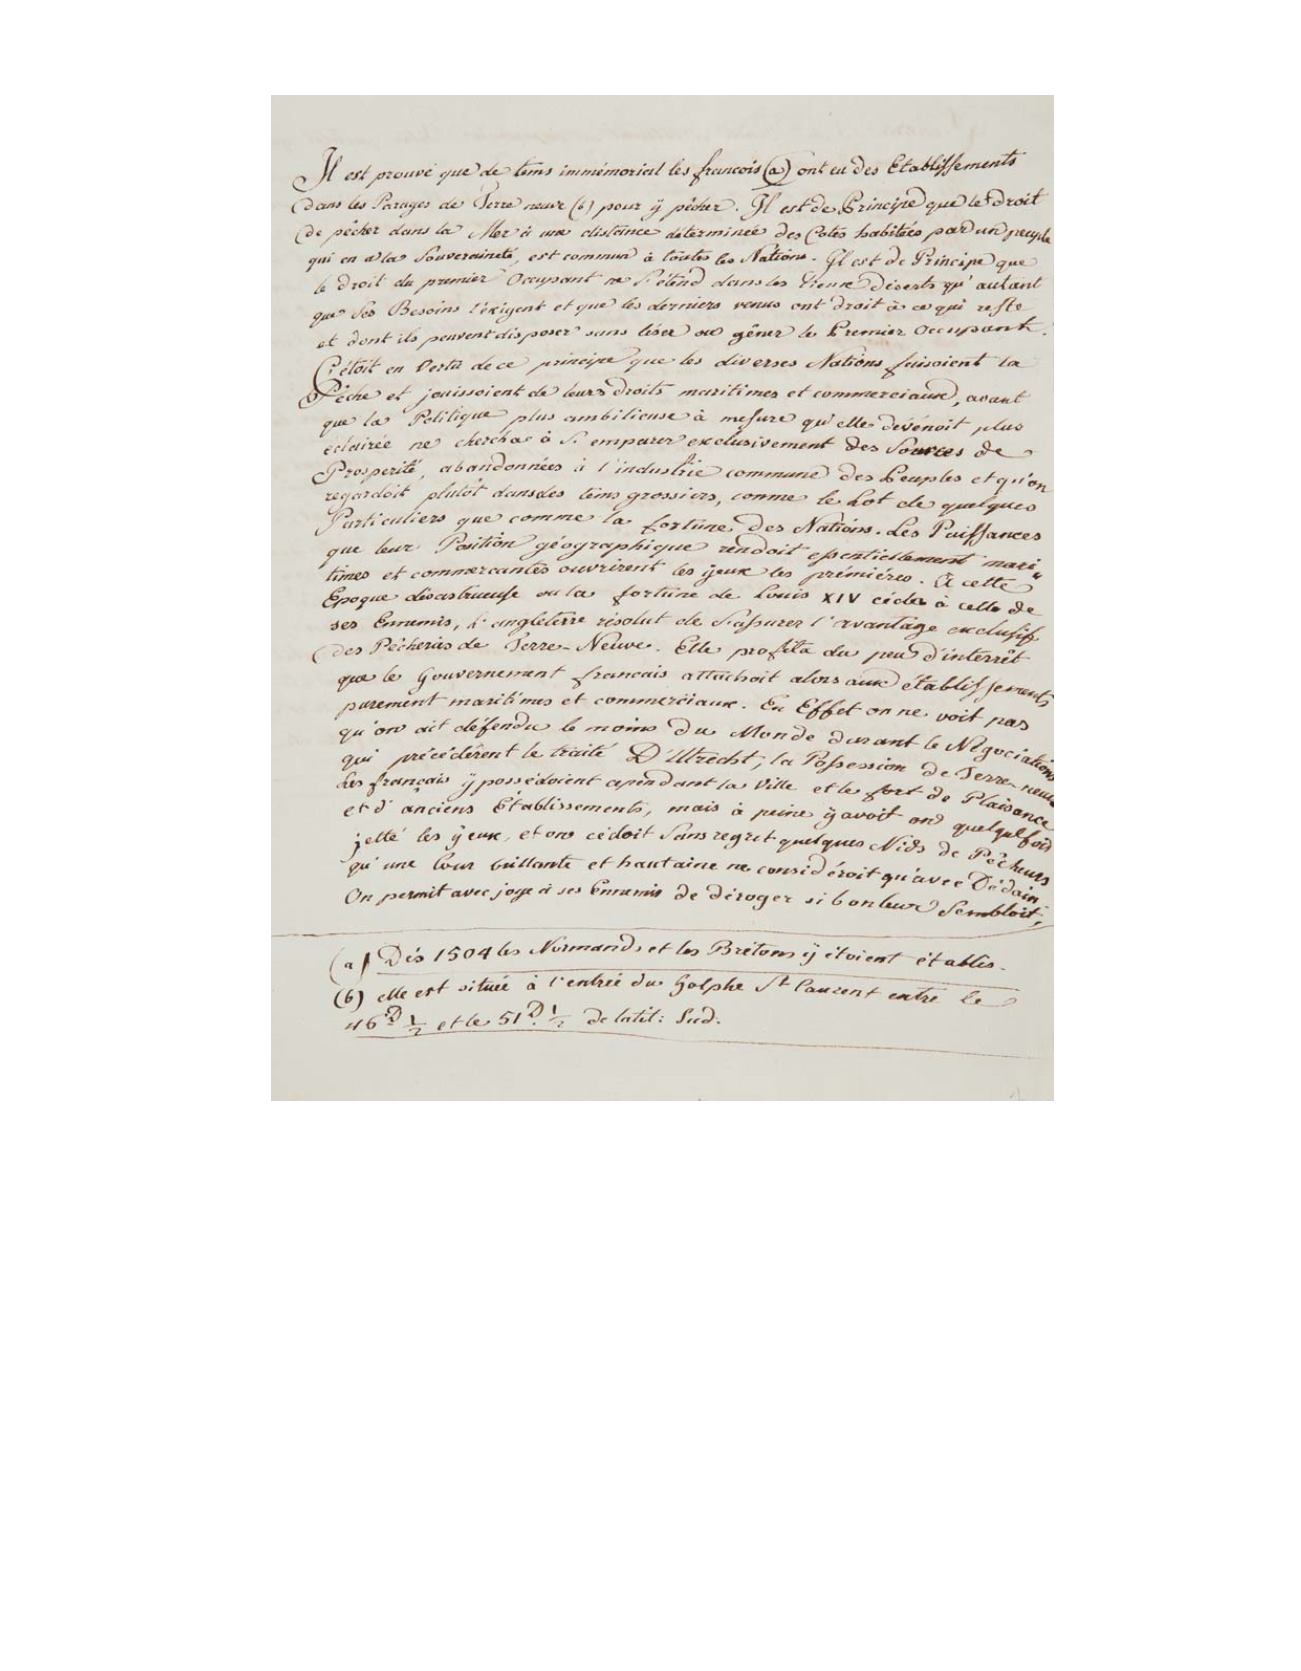 Il est prouvé que de tems immémorial les francois (a) ont eu des Etablissements
dans les Parages de Terre neuve (b) pour ÿ pêcher. Il est de Principe que le droit
de pêcher dans la Mer à une distance déterminée des Cotes habitées par un peuple
qui en a la Souveraineté, est commun à toutes les Nations. Il est de Principe que
le droit du premier Occupant ne S'étend dans les Lieux déserts qu'autant
que Ses Besoins l'exigent et que les derniers venus ont droit à ce qui reste
et dont ils peuvent disposer sans léser ou gêner le Premier Occupant.
C'étoit en Vertu de ce principe que les diverses Nations faisoient la
Pêche et jouissoient de leurs droits maritimes et commerciaux, avant
que la Politique plus ambitieuse à mesure qu'elle dévénoit plus
éclairée ne chercha à S'emparer exclusivement des Sources de
Prosperité, abandonnées à l'industrie commune des Peuples et qu'on
regardoit plutôt dans des tems grossiers, comme le Lot de quelques
Particuliers que comme la fortune des Nations. Les Puissances
que leur Position géographique rendoit essentiellement mari"
times et commercantes ouvrirent les ÿeux les prémiéres. A cette
Epoque désastrueuse ou la fortune de Louis XIV céda à celle de
ses Ennemis, L'angleterre résolut de S'assurer l'avantage exclusif
des Pêcheries de Terre-Neuve. Elle profita du peu d'interrêt
que le Gouvernement francais attachoit alors aux établissements
purement maritimes et commerciaux. En Effet on ne voit pas
qu'on ait défendu le moins du Monde durant le Négociations
qui précédèrent le traité D'Utrecht, la Possession de Terre-neuve
Les français ÿ possédoient cependant la Ville et le fort de Plaisance
et d'anciens Etablissements, mais à peine ÿ avoit on quelquefois
jetté les ÿeux, et on cédoit Sans regret quelques Nids de Pêcheurs
qu'une Cour brillante et hautaine ne considéroit qu'avec Dédain.
On permit avec joye à ses Ennemis de déroger si bon leur Sembloit,
(a) Dès 1504 les Normands et les Brétons ÿ étoient établis.
(b) elle est située à l'entrée du Golphe St Laurent entre le
46 D. 1/2 et le 51 D. 1/2 de latit: Sud.